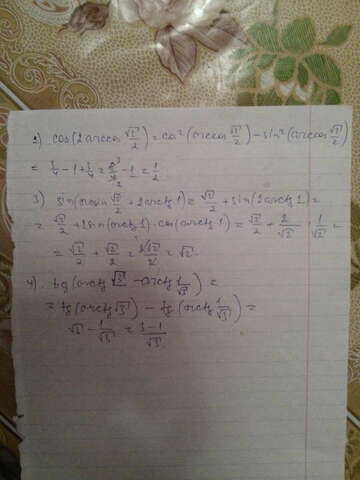 2) cos(2 arccos √3/2) = cos²(arccos √3/2) - sin²(arccos √3/2)
= 3/4 - 1 + 3/4 = - 1 = 1/2
3) sin(arcsin √2/2 + 2arctg 1) = √2/2 + sin(2arctg 1) =
= √2/2 + 2sin(arctg 1) · cos(arctg 1) = √2/2 + 2/√2 · 1/√2 =
= √2/2 + √2/2 = 2√2/2 = √2.
4). tg(arctg √3 - arctg 1/√3) =
= tg(arctg √3) - tg(arctg 1/√3) =
√3 - 1/√3 = 3-1/√3